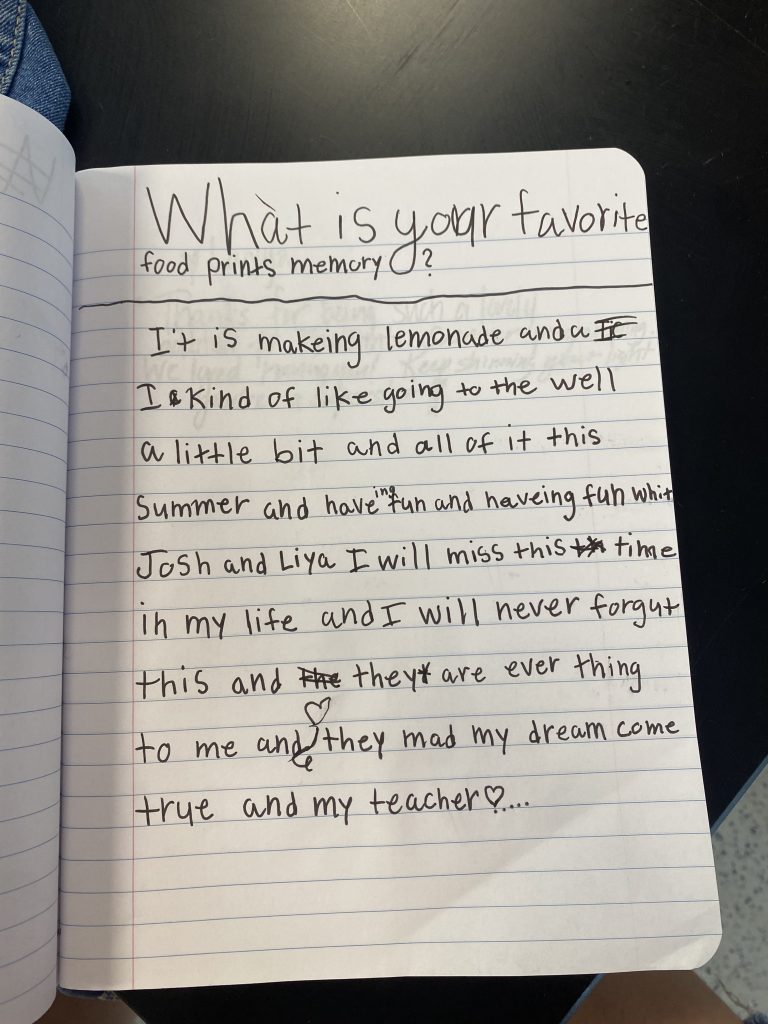 What is your favorite
food prints memory?
I't is makeing lemonade and a
I kind of like going to the well
a little bit and all of it this
summer and haveing fun and haveing fun whit
Josh and Liya I will miss this time
in my life and I will never forgut
this and they are ever thing
to me and they mad my dream come
trye and my teacher♡....